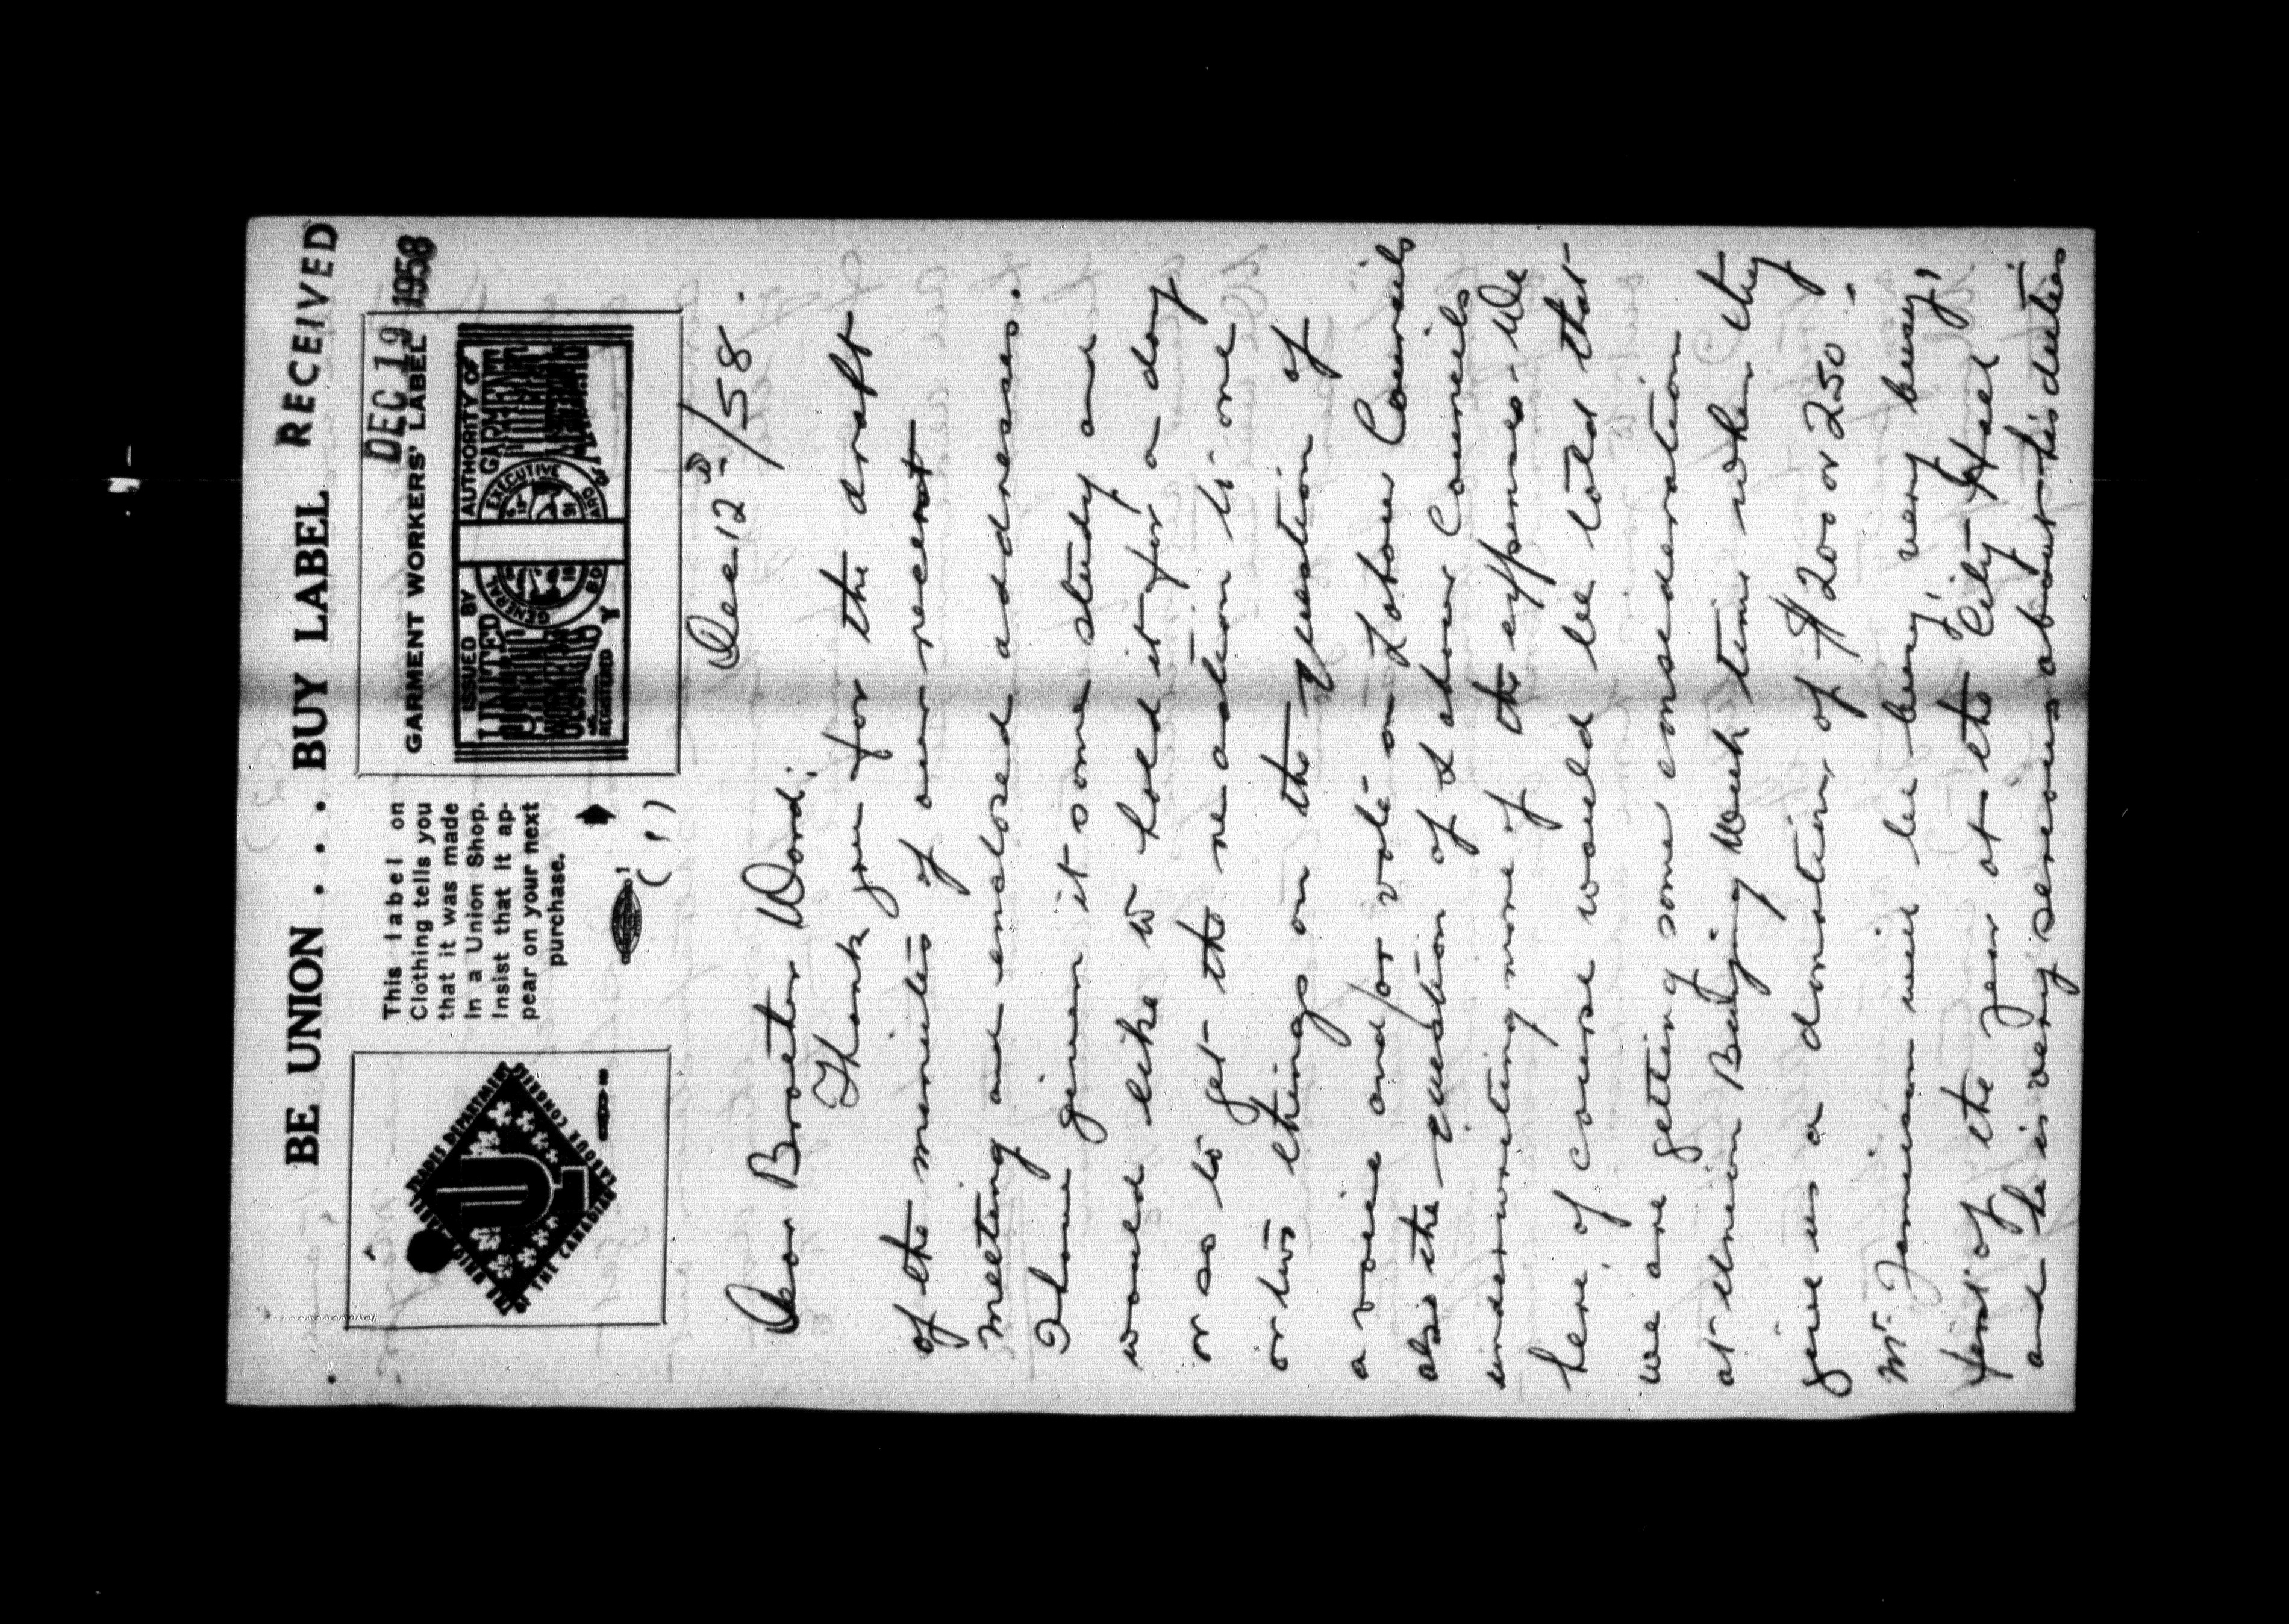 BE UNION . . . BUY LABEL
RECEIVED
DEC 19 1958
THE UNION LABEL TRADES DEPARTMENT
OF THE CANADIAN LABOUR CONGRESS
This label on
Clothing tells you
that it was made
in a Union Shop.
Insist that it ap-
pear on your next
purchase.
GARMENT WORKERS' LABEL
ISSUED BY AUTHORITY OF
UNITED GARMENT
GENERAL EXECUTIVE BOARD
REGISTERED
(1)
Dec 12th/58.
Dear Brother Word;
Thank you for the draft
of the minutes of our recent
meeting and enclosed addresses.
I have given it some study and
would like to hold it for a day
or so to get the reaction to one
or two things on the question of
a voice and/or vote on Labour Councils
also the question of Labour Councils
underwriting more of the expenses - We
here of course would be told that
we are getting some consideration
at Union Buying Week time when they
give us a donation of $200 or 250 -
Mr. Jamieson will be busy, very busy,
first of the year at the City Hall
and he is very serious about his duties